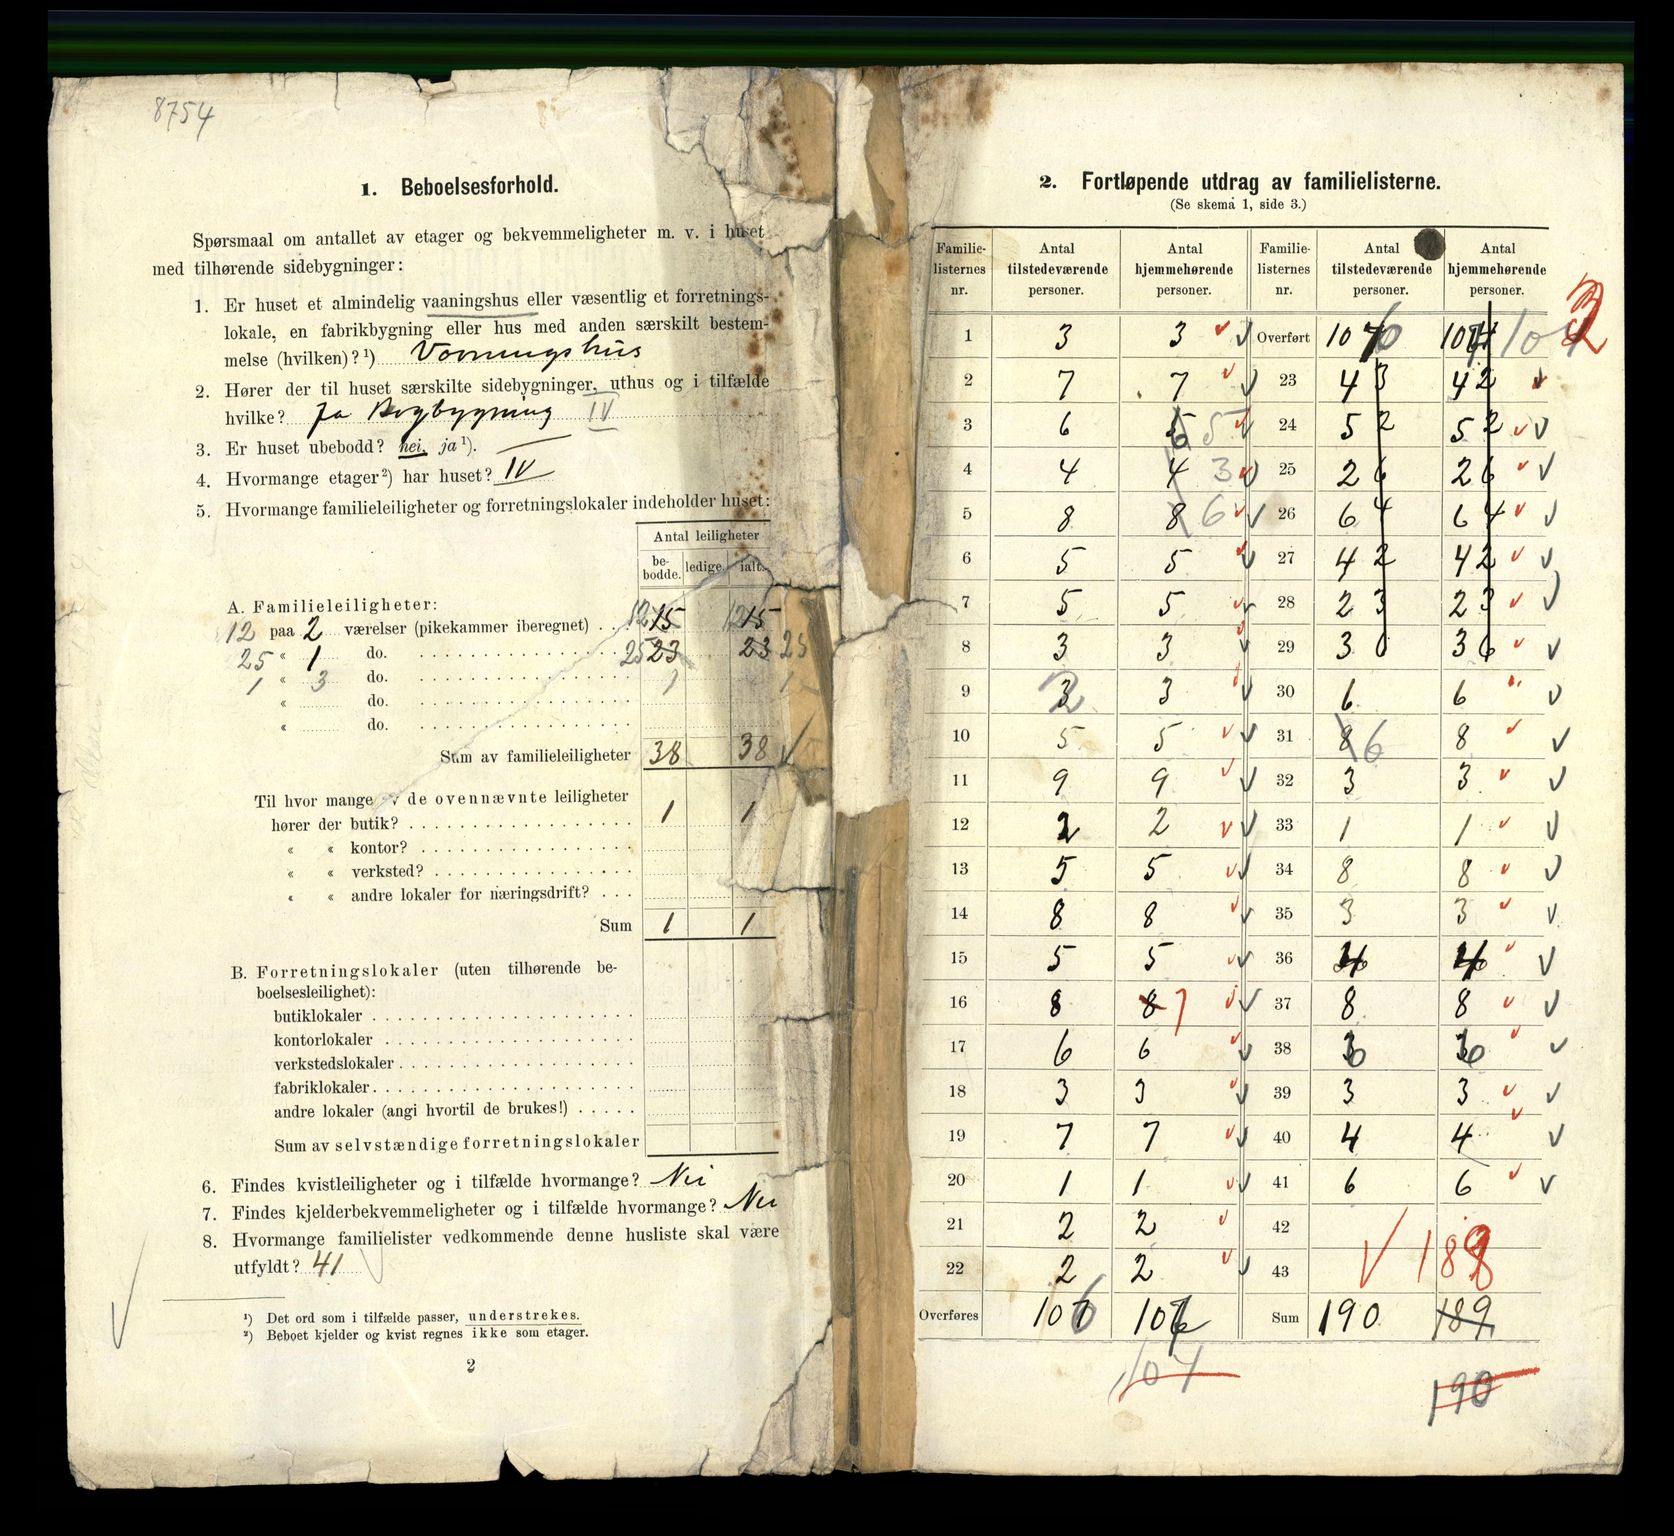 8754
1. Beboelsesforhold.
Spørsmaal om antallet av etager og bekvemmeligheter m. v. i huset
med tilhørende sidebygninger:
1. Er huset et almindelig vaaningshus eller væsentlig et forretnings-
lokale, en fabrikbygning eller hus med anden særskilt bestem-
melse (hvilken)?¹) Vaaningshus
2. Hører der til huset særskilte sidebygninger, uthus og i tilfælde
hvilke? Ja Bagbygning IV
3. Er huset ubebodd? nei, ja¹).
4. Hvormange etager²) har huset? IV
5. Hvormange familieleiligheter og forretningslokaler indeholder huset:
Antal leiligheter
be-
bodde. ledige. ialt.
A. Familieleiligheter:
12 paa 2 værelser (pikekammer iberegnet) . . . 12 15 12 15
25 « 1 do. 25 23 23 25
1 « 3 do. 1 1
« do.
« do.
Sum av familieleiligheter 38 38
Til hvor mange av de ovennævnte leiligheter
hører der butik? 1 1
« « kontor?
« « verksted?
« « andre lokaler for næringsdrift? . . .
Sum 1 1
B. Forretningslokaler (uten tilhørende be-
boelsesleilighet):
butiklokaler
kontorlokaler
verkstedslokaler
fabriklokaler
andre lokaler (angi hvortil de brukes!)
Sum av selvstændige forretningslokaler
6. Findes kvistleiligheter og i tilfælde hvormange? Nei
7. Findes kjelderbekvemmeligheter og i tilfælde hvormange? Nei
8. Hvormange familielister vedkommende denne husliste skal være
utfyldt? 41
¹) Det ord som i tilfælde passer, understrekes.
²) Beboet kjelder og kvist regnes ikke som etager.
2
2. Fortløpende utdrag av familielisterne.
(Se skema 1, side 3.)
Familie-listernes nr. Antal tilstedeværende personer. Antal hjemmehørende personer. Familie-listernes nr. Antal tilstedeværende personer. Antal hjemmehørende personer.
1 3 3 Overført 106 104
2 7 7 23 4 3 4 2
3 6 5 24 5 2 5 2
4 4 4 3 25 2 6 2 6
5 8 8 6 26 6 4 6 4
6 5 5 27 4 2 4 2
7 5 5 28 2 3 2 3
8 3 3 29 3 3 6
9 3 2 3 30 6 6
10 5 5 31 8 6 8
11 9 9 32 3 3
12 2 2 33 1 1
13 5 5 34 8 8
14 8 8 35 3 3
15 5 5 36 4 4
16 8 8 7 37 8 8
17 6 6 38 6 6
18 3 3 39 3 3
19 7 7 40 4 4
20 1 1 41 6 6
21 2 2 42
22 2 2 43
Overføres 106 Sum 190 189
104 190